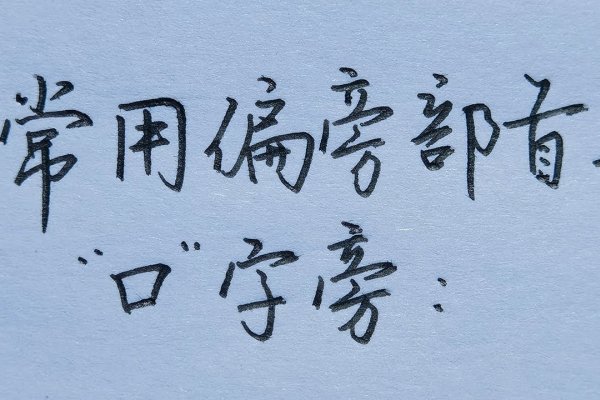 常用偏旁部首
“口”字旁：